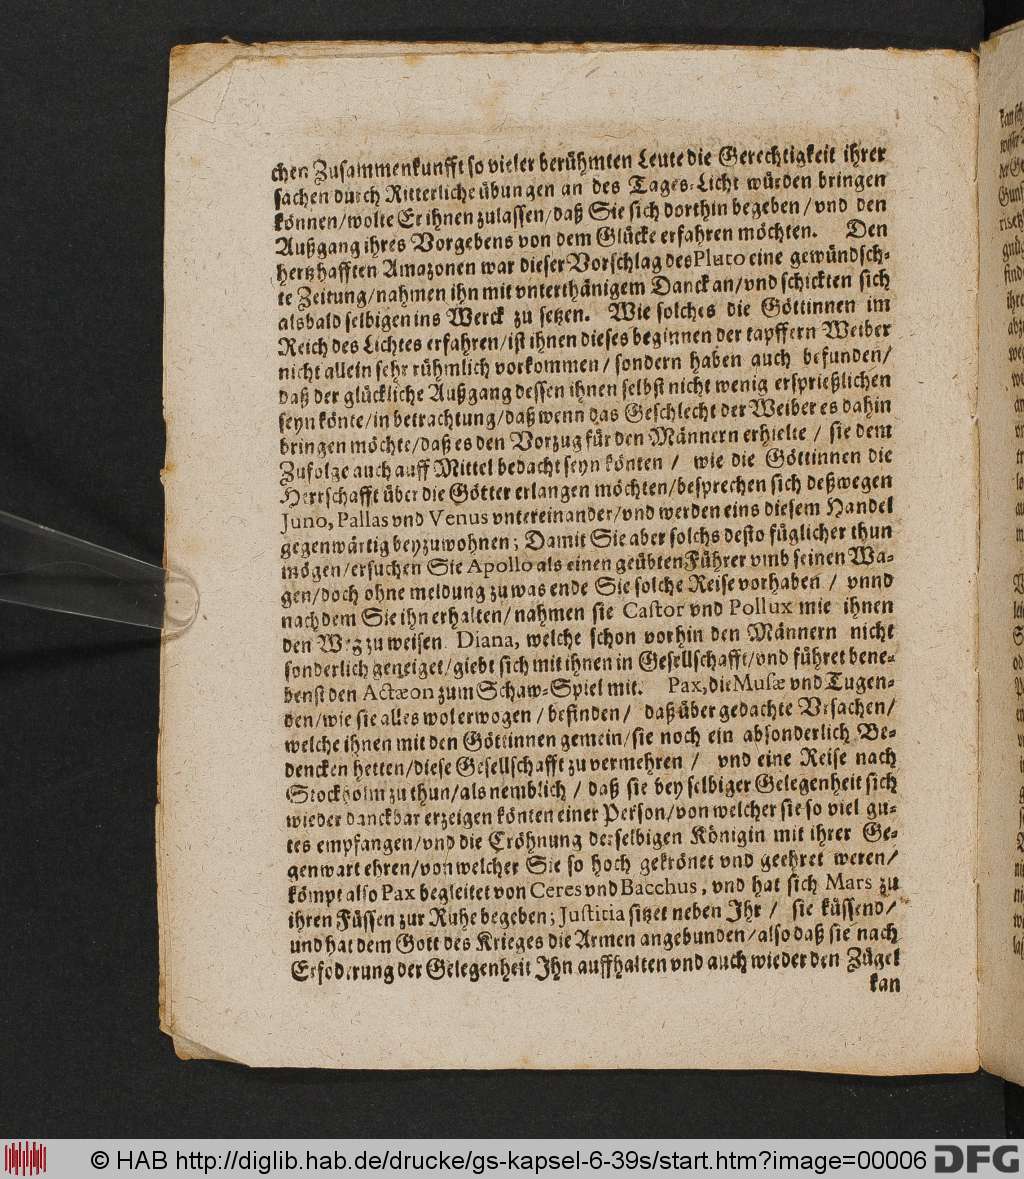 chen Zusammenkunfft so vieler berühmten Leute die Gerechtigkeit ihrer
sachen durch Ritterliche übungen an des Tages-Licht würden bringen
können/wolte Er ihnen zulassen/daß Sie sich dorthin begeben/vnd den
Außgang ihres Vorgebens von dem Glücke erfahren möchten. Den
hertzhafften Amazonen war dieser Vorschlag des Pluto eine gewündsch-
te Zeitung/nahmen ihn mit vnterthänigem Danck an/vnd schickten sich
alsbald selbigen ins Werck zu setzen. Wie solches die Göttinnen im
Reich des Lichtes erfahren/ist ihnen dieses beginnen der tapffern Weiber
nicht allein sehr rühmlich vorkommen/sondern haben auch befunden/
daß der glückliche Außgang dessen ihnen selbst nicht wenig ersprießlichen
seyn könte/in betrachtung/daß wenn das Geschlecht der Weiber es dahin
bringen möchte/daß es den Vorzug für den Männern erhielte / sie dem
Zufolge auch auff Mittel bedacht seyn könten / wie die Göttinnen die
Herrschafft über die Götter erlangen möchten/besprechen sich deßwegen
Juno, Pallas vnd Venus vntereinander/vnd werden eins diesem Handel
gegenwärtig beyzuwohnen; Damit Sie aber solchs desto füglicher thun
mögen/ersuchen Sie Apollo als einen geübten Führer vmb seinen Wa-
gen/doch ohne meldung zu was ende Sie solche Reise vorhaben / vnnd
nach dem Sie ihn erhalten/nahmen sie Castor vnd Pollux mie ihnen
den Weg zu weisen Diana, welche schon vorhin den Männern nicht
sonderlich geneiget/giebt sich mit ihnen in Gesellschafft/vnd führet bene-
benst den Actæon zum Schaw-Spiel mit. Pax, die Musæ vnd Tugen-
den/wie sie alles wol erwogen/befinden/ daß über gedachte Vrsachen/
welche ihnen mit den Göttinnen gemein/sie noch ein absonderlich Be-
dencken hetten/diese Gesellschafft zu vermehren / vnd eine Reise nach
Stockholm zu thun/als nemblich / daß sie bey selbiger Gelegenheit sich
wieder danckbar erzeigen könten einer Person/von welcher sie so viel gu-
tes empfangen/vnd die Cröhnung derselbigen Königin mit ihrer Ge-
genwart ehren/von welcher Sie so hoch gekrönet vnd geehret weren/
kömpt also Pax begleitet von Ceres vnd Bacchus, vnd hat sich Mars zu
ihren Füssen zur Ruhe begeben; Justitia sitzet neben Ihr / sie küssend/
und hat dem Gott des Krieges die Armen angebunden/also daß sie nach
Erfoderung der Gelegenheit Ihn auffhalten vnd auch wieder den Zügel
kan
© HAB http://diglib.hab.de/drucke/gs-kapsel-6-39s/start.htm?image=00006 DFG